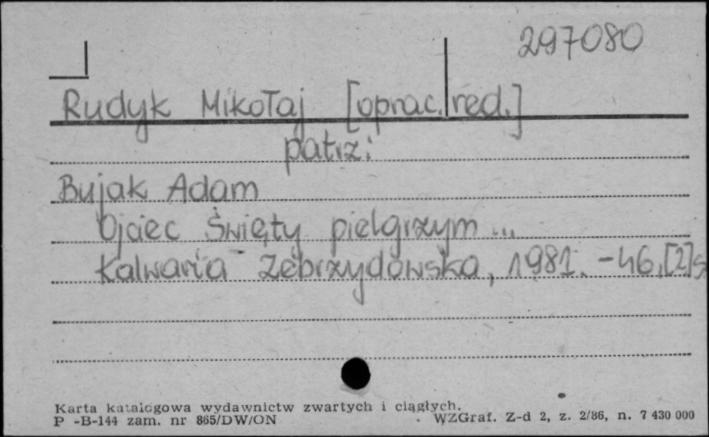 297080
Rudyk Mikołaj [oprac. red.]
patrz:
Bujak Adam
Ojciec Święty pielgrzym ...
Kalwaria Zebrzydowska, 1981. - 46,[2]s
Karta katalogowa wydawnictw zwartych i ciągłych.
P -B-144 zam. nr 865/DW/ON WZGraf. Z-d 2, z. 2/86, n. 7 430 000